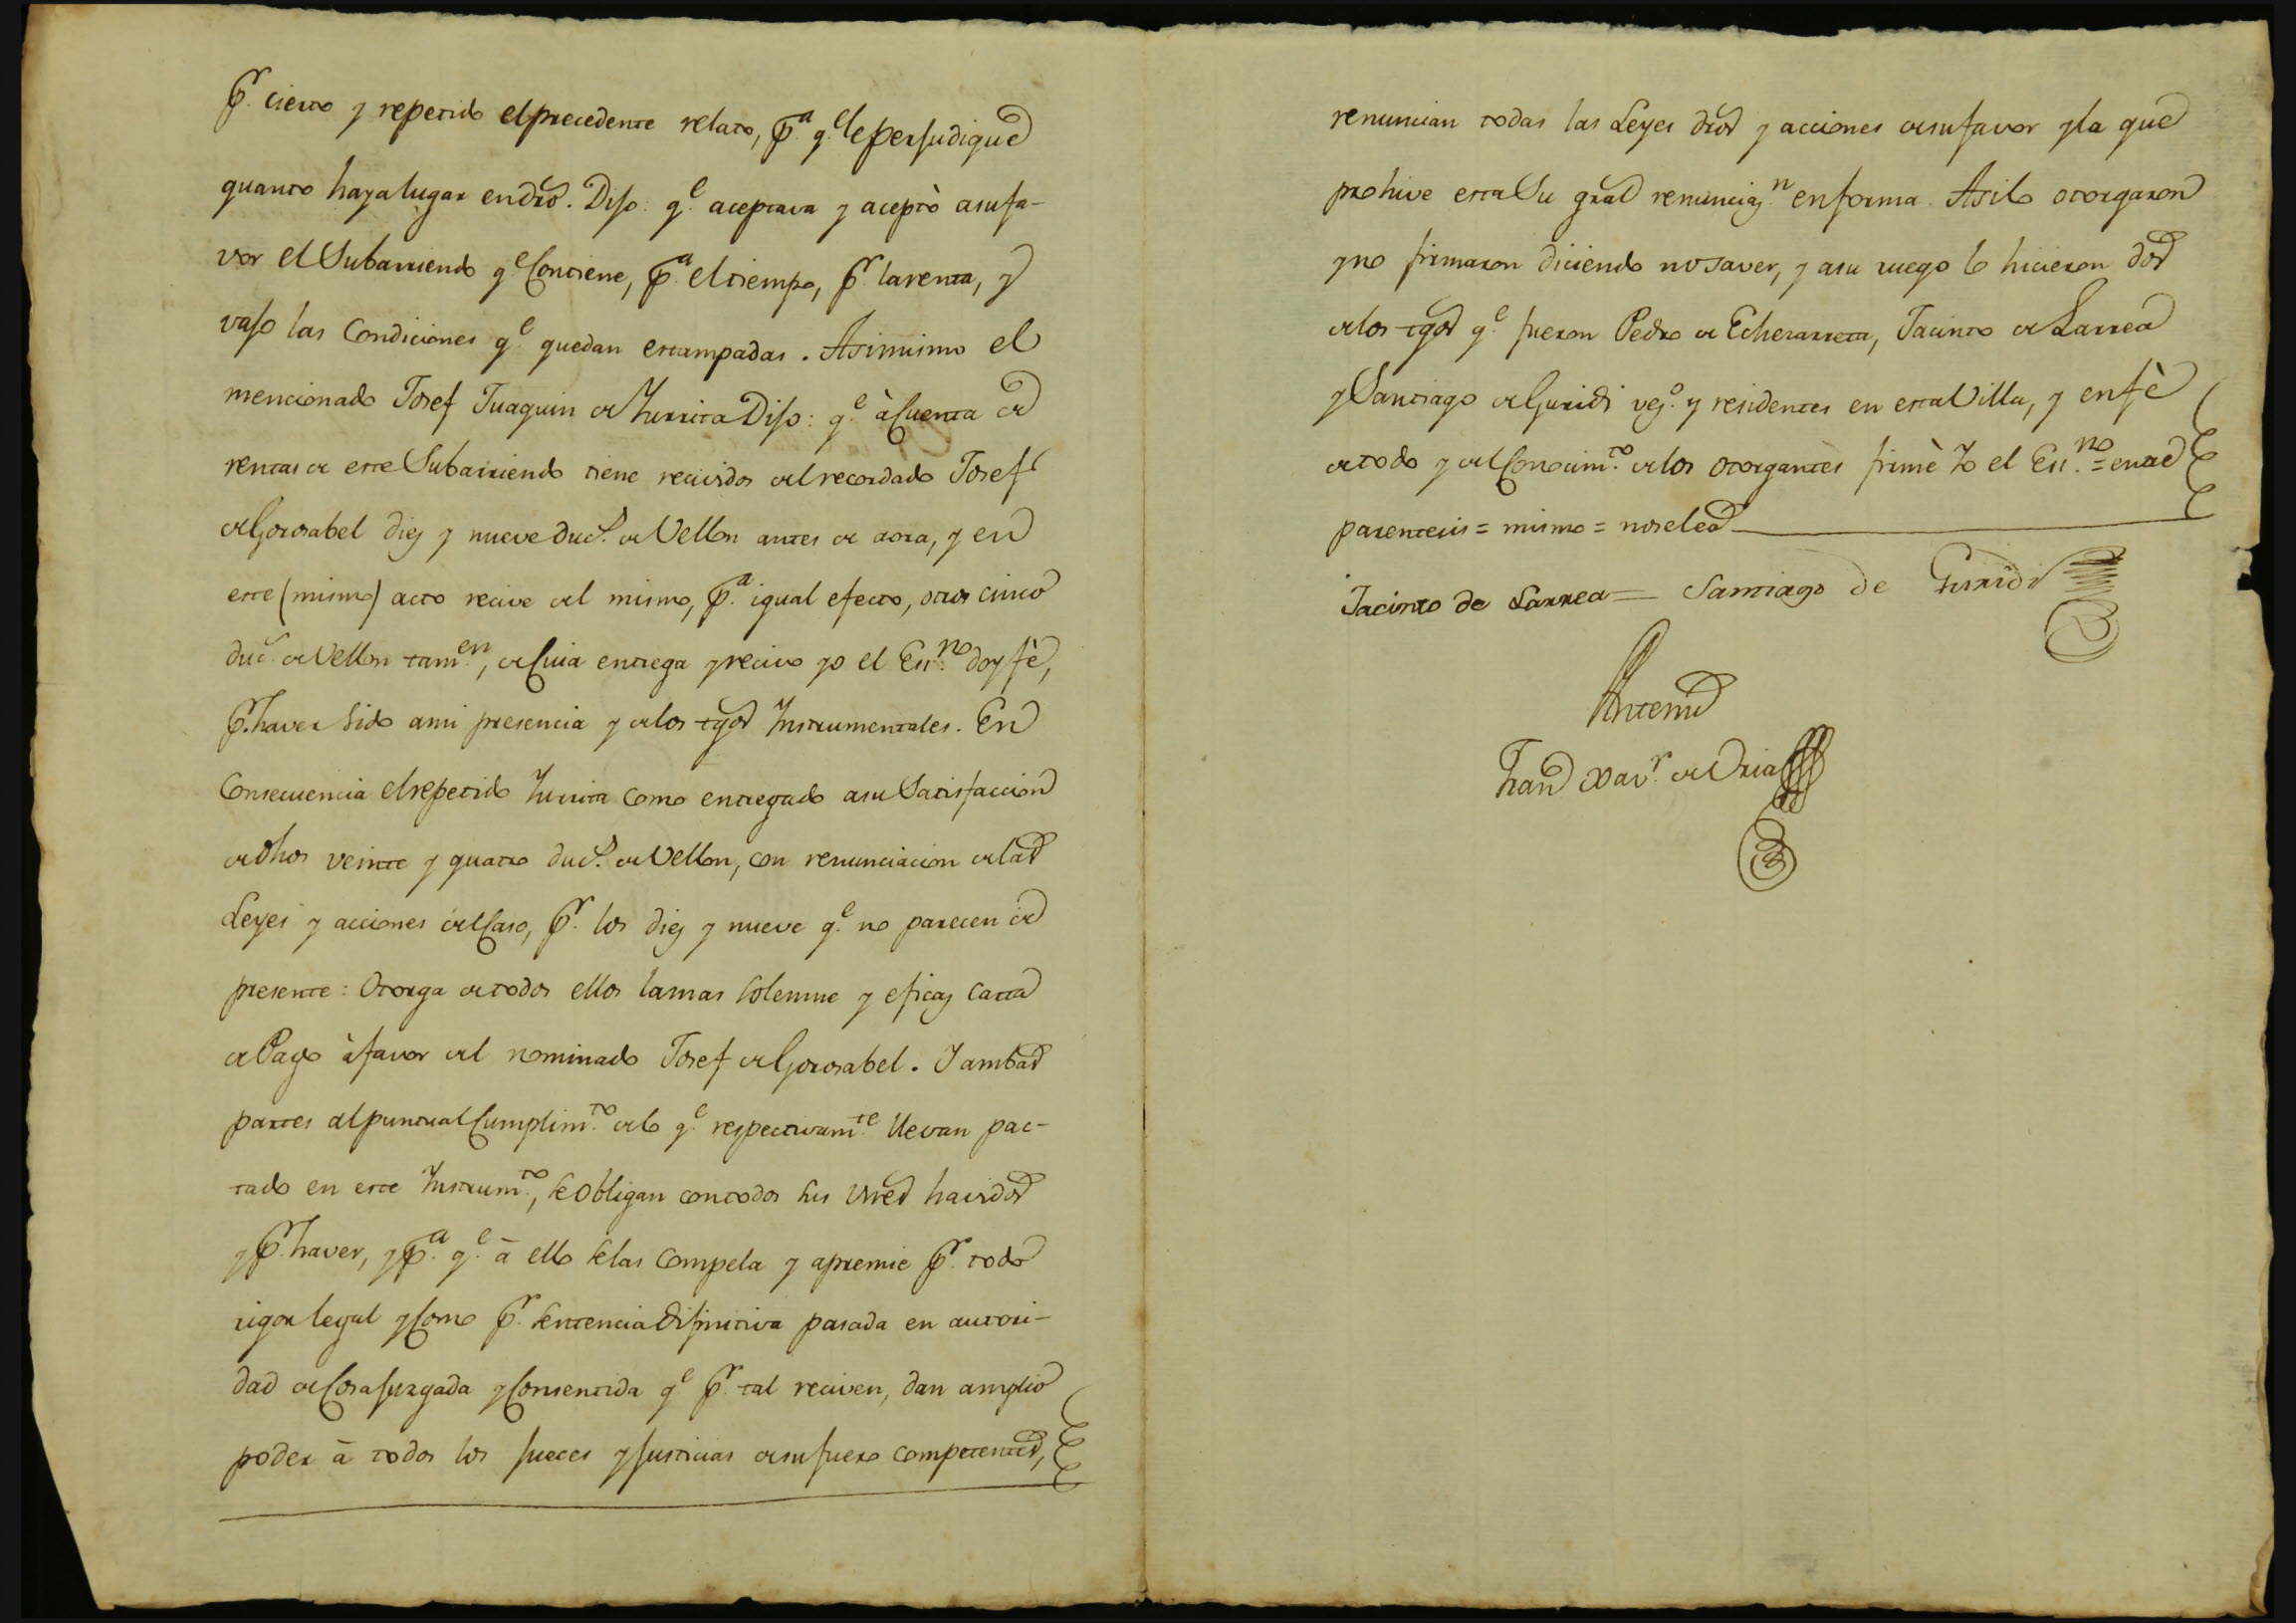 pr. cierto y repetido el precedente relato, pa. qe. le perjudique
quanto haya lugar en dro. Dijo: qe. aceptava y aceptò a su fa-
vor el Subarriendo qe. Contiene, pa. el tiempo, pr. la renta, y
vajo las Condiciones qe. quedan estampadas. Asimismo el
mencionado Josef Juaquin de Yurrita Dijo: qe. à Cuenta de
rentas de este Subarriendo tiene recividos del recordado Josef
de Gorosabel diez y nueve ducs. de Vellon antes de aora, y en
este (mismo) acto recive del mismo, pa. igual efecto, otros cinco
duc. de Vellon tamen., de Cuia entrega y recivo yo el Essno. doy fè,
pr. haver sido a mi presencia y de los tgos Ynstrumentales. En
Consecuencia el repetido Yurrita como entregado a su Satisfaccion
de dhos veinte y quatro ducs. de Vellon, con renunciacion de las
Leyes y acciones del Caso, pr. los diez y nueve qe. no parecen de
presente: Otorga de todos ellos la mas solemne y eficaz carta
de Pago à favor del nominado Josef de Gorosabel. Y ambas
partes al puntual Cumplimto. de lo qe. respectivamte. llevan pac-
tado en este Ynstrumto., se obligan con todos sus vnes havidos
y pr. haver, y pa. qe. à ello se las Compela y apremie pr. todo
rigor legal y Como pr. sentencia difinitiva pasada en autori-
dad de Cosa juzgada y Consentida qe. pr. tal reciven, dan amplio
poder à todos los jueces y justicias de su fuero competentes,
renuncian todas las Leyes dros y acciones de su favor y la que
prohive esta Su gral renunciazn. en forma. Asi lo otorgaron
y no firmaron diciendo no saver, y a su ruego lo hicieron dos
de los tgos qe. fueron Pedro de Echezarreta, Jacinto de Larrea
y Santiago de Guridi vezo. y residentes en esta Villa, y en fè
de todo y del Conocimto. de los otorgantes firmè Yo el Essno. = entre
parentesis = mismo = no se lea
Jacinto de Larrea = Santiago de Guridi
Ante mi
Fran Xavr. de Oria